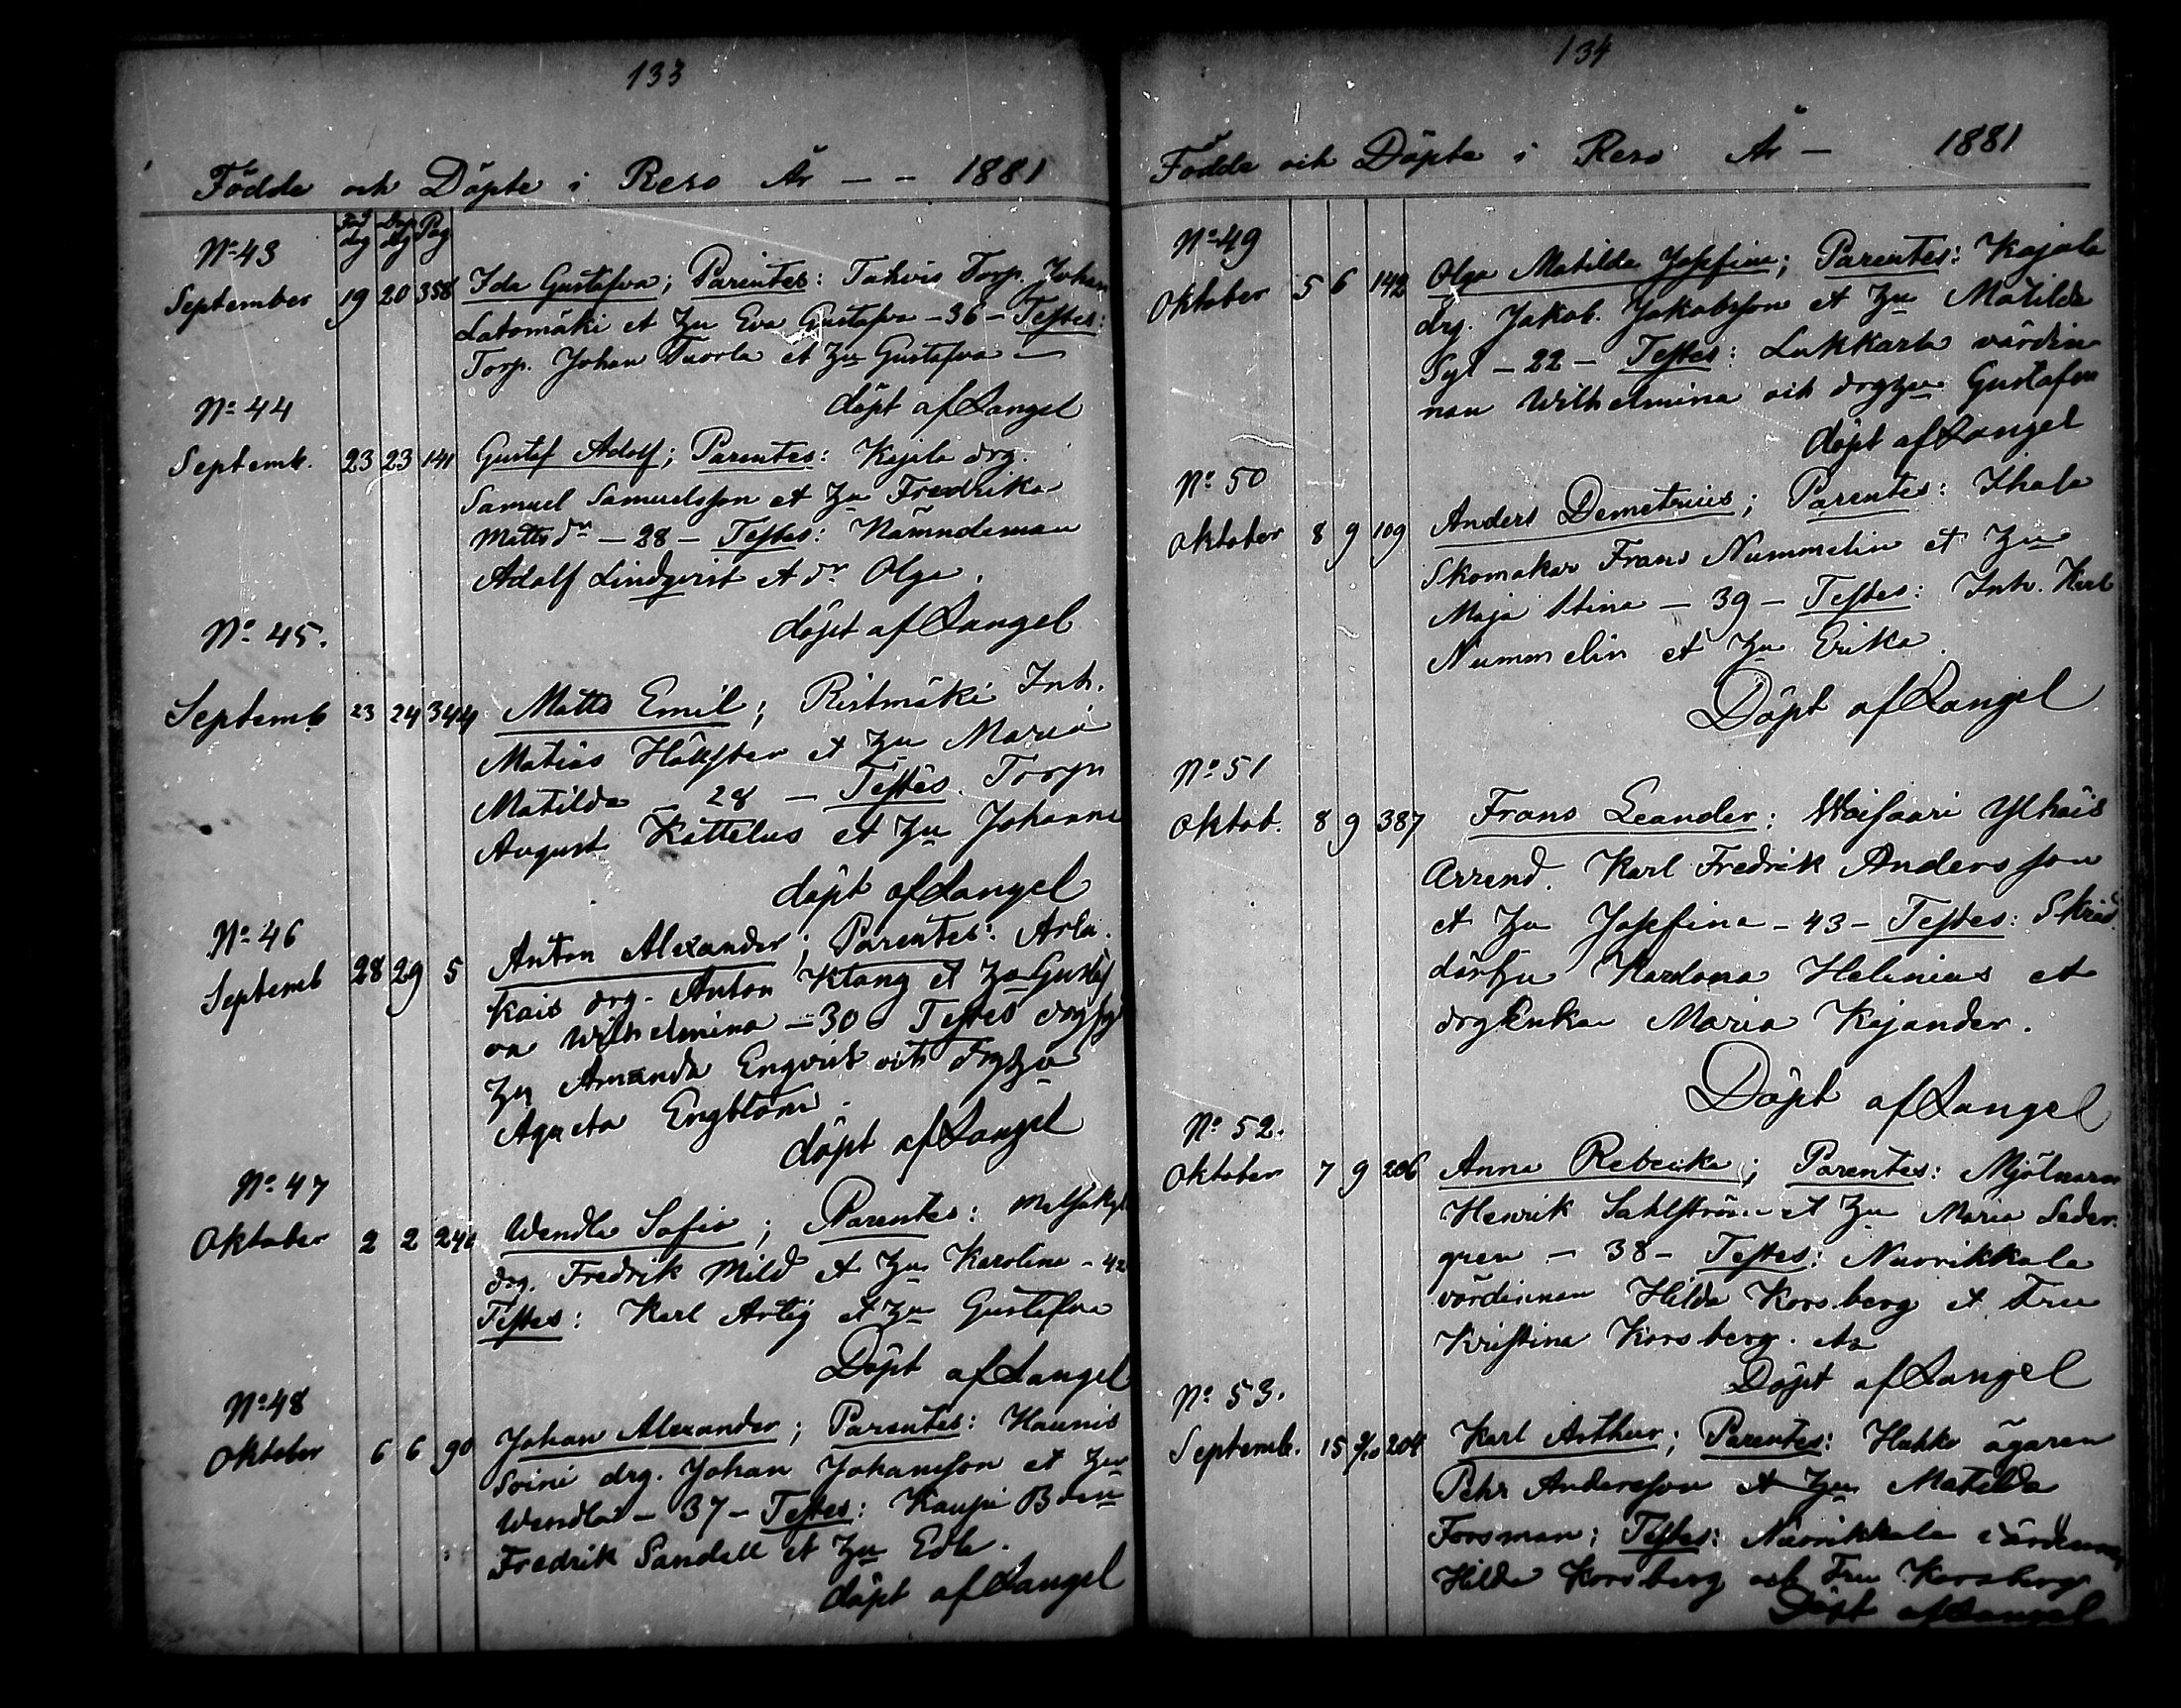 133
Födde och Döpte i Reso År - - 1881
Föd dag Döp dag Pag
No 43
September 19 20 358 Ida Gustafva; Parentes: Tahvis Torp. Johan
Latomäki et hu Eva Gustafva - 36 - Testes:
Torp. Johan Tuorla et hu Gustafva -
döpt af Langel
No 44
Septemb. 23 23 141 Gustaf Adolf; Parentes: Kajala drg.
Samuel Samuelsson et hu Fredrika
Matts dr - 28 - Testes: Nämndeman
Adolf Lindqvist et dr Olga.
döpt af Langel
No 45.
Septemb 23 24 344 Matts Emil; Ristmäki Inh.
Matias Hällsten et hu Maria
Matilda - 28 - Testes. Torp
August Kattelus et hu Johanna
döpt af Langel
No 46
Septemb 28 29 5 Anton Alexander; Parentes: Arla.
Kais drg. Anton Klang et hu Gustaf
va Wilhelmina - 30 - Testes
hu Amanda Engvist och drghu
Agneta Engblom.
döpt af Langel
No 47
Oktober 2 2 Wendla Sofia; Parentes:
drg. Fredrik Mild et hu Karolina - 42
Testes: Karl Artig et hu Gustafva
Döpt af Langel
No 48
Oktober 6 6 90 Johan Alexander; Parentes: Haunis
Soini drg. Johan Johansson et hu
Wendla - 37 - Testes: Kaupi
Fredrik Sandell et hu Eda.
döpt af Langel
134
Födde och Döpte i Reso År - 1881
No 49
Oktober 5 6 142 Olga Matilda Josefina; Parentes: Kajala
drg. Jakob Jakobsson et hu Matilda
Syl - 22 - Testes: Lukkarla värdin
nan Wilhelmina och drghu Gustafva
döpt af Langel
No 50
Oktober 8 9 109 Anders Demetrius; Parentes: Ihala
Skomakar Frans Nummelin et hu
Maja Stina - 39 - Testes: Inh. Karl
Nummelin et hu Erika.
Döpt af Langel
No 51
Oktob. 8 9 387 Frans Leander: Waisaari Ylhäis
Arrend. Karl Fredrik Andersson
et hu Josefina - 43 - Testes: Skräd
darhu Helenius et
drgEnkan Maria Kajander.
Döpt af Langel
No 52.
Oktober 7 9 206 Anna Rebecka; Parentes: Mjölnaren
Henrik Sahlström et hu Maria Seder
gren - 38 - Testes: Nuorikkala
värdinnan Hilda Korsberg et Fru
Kristina Korsberg.
Döpt af Langel
No 53.
Septemb. 15 9/10 204 Karl Arthur; Parentes: Hakko ägaren
Pehr Andersson et hu Matilda
Forsman; Testes: Nuorikkala värdinnan
Hilda Korsberg och Fru Korsberg
Döpt af Langel